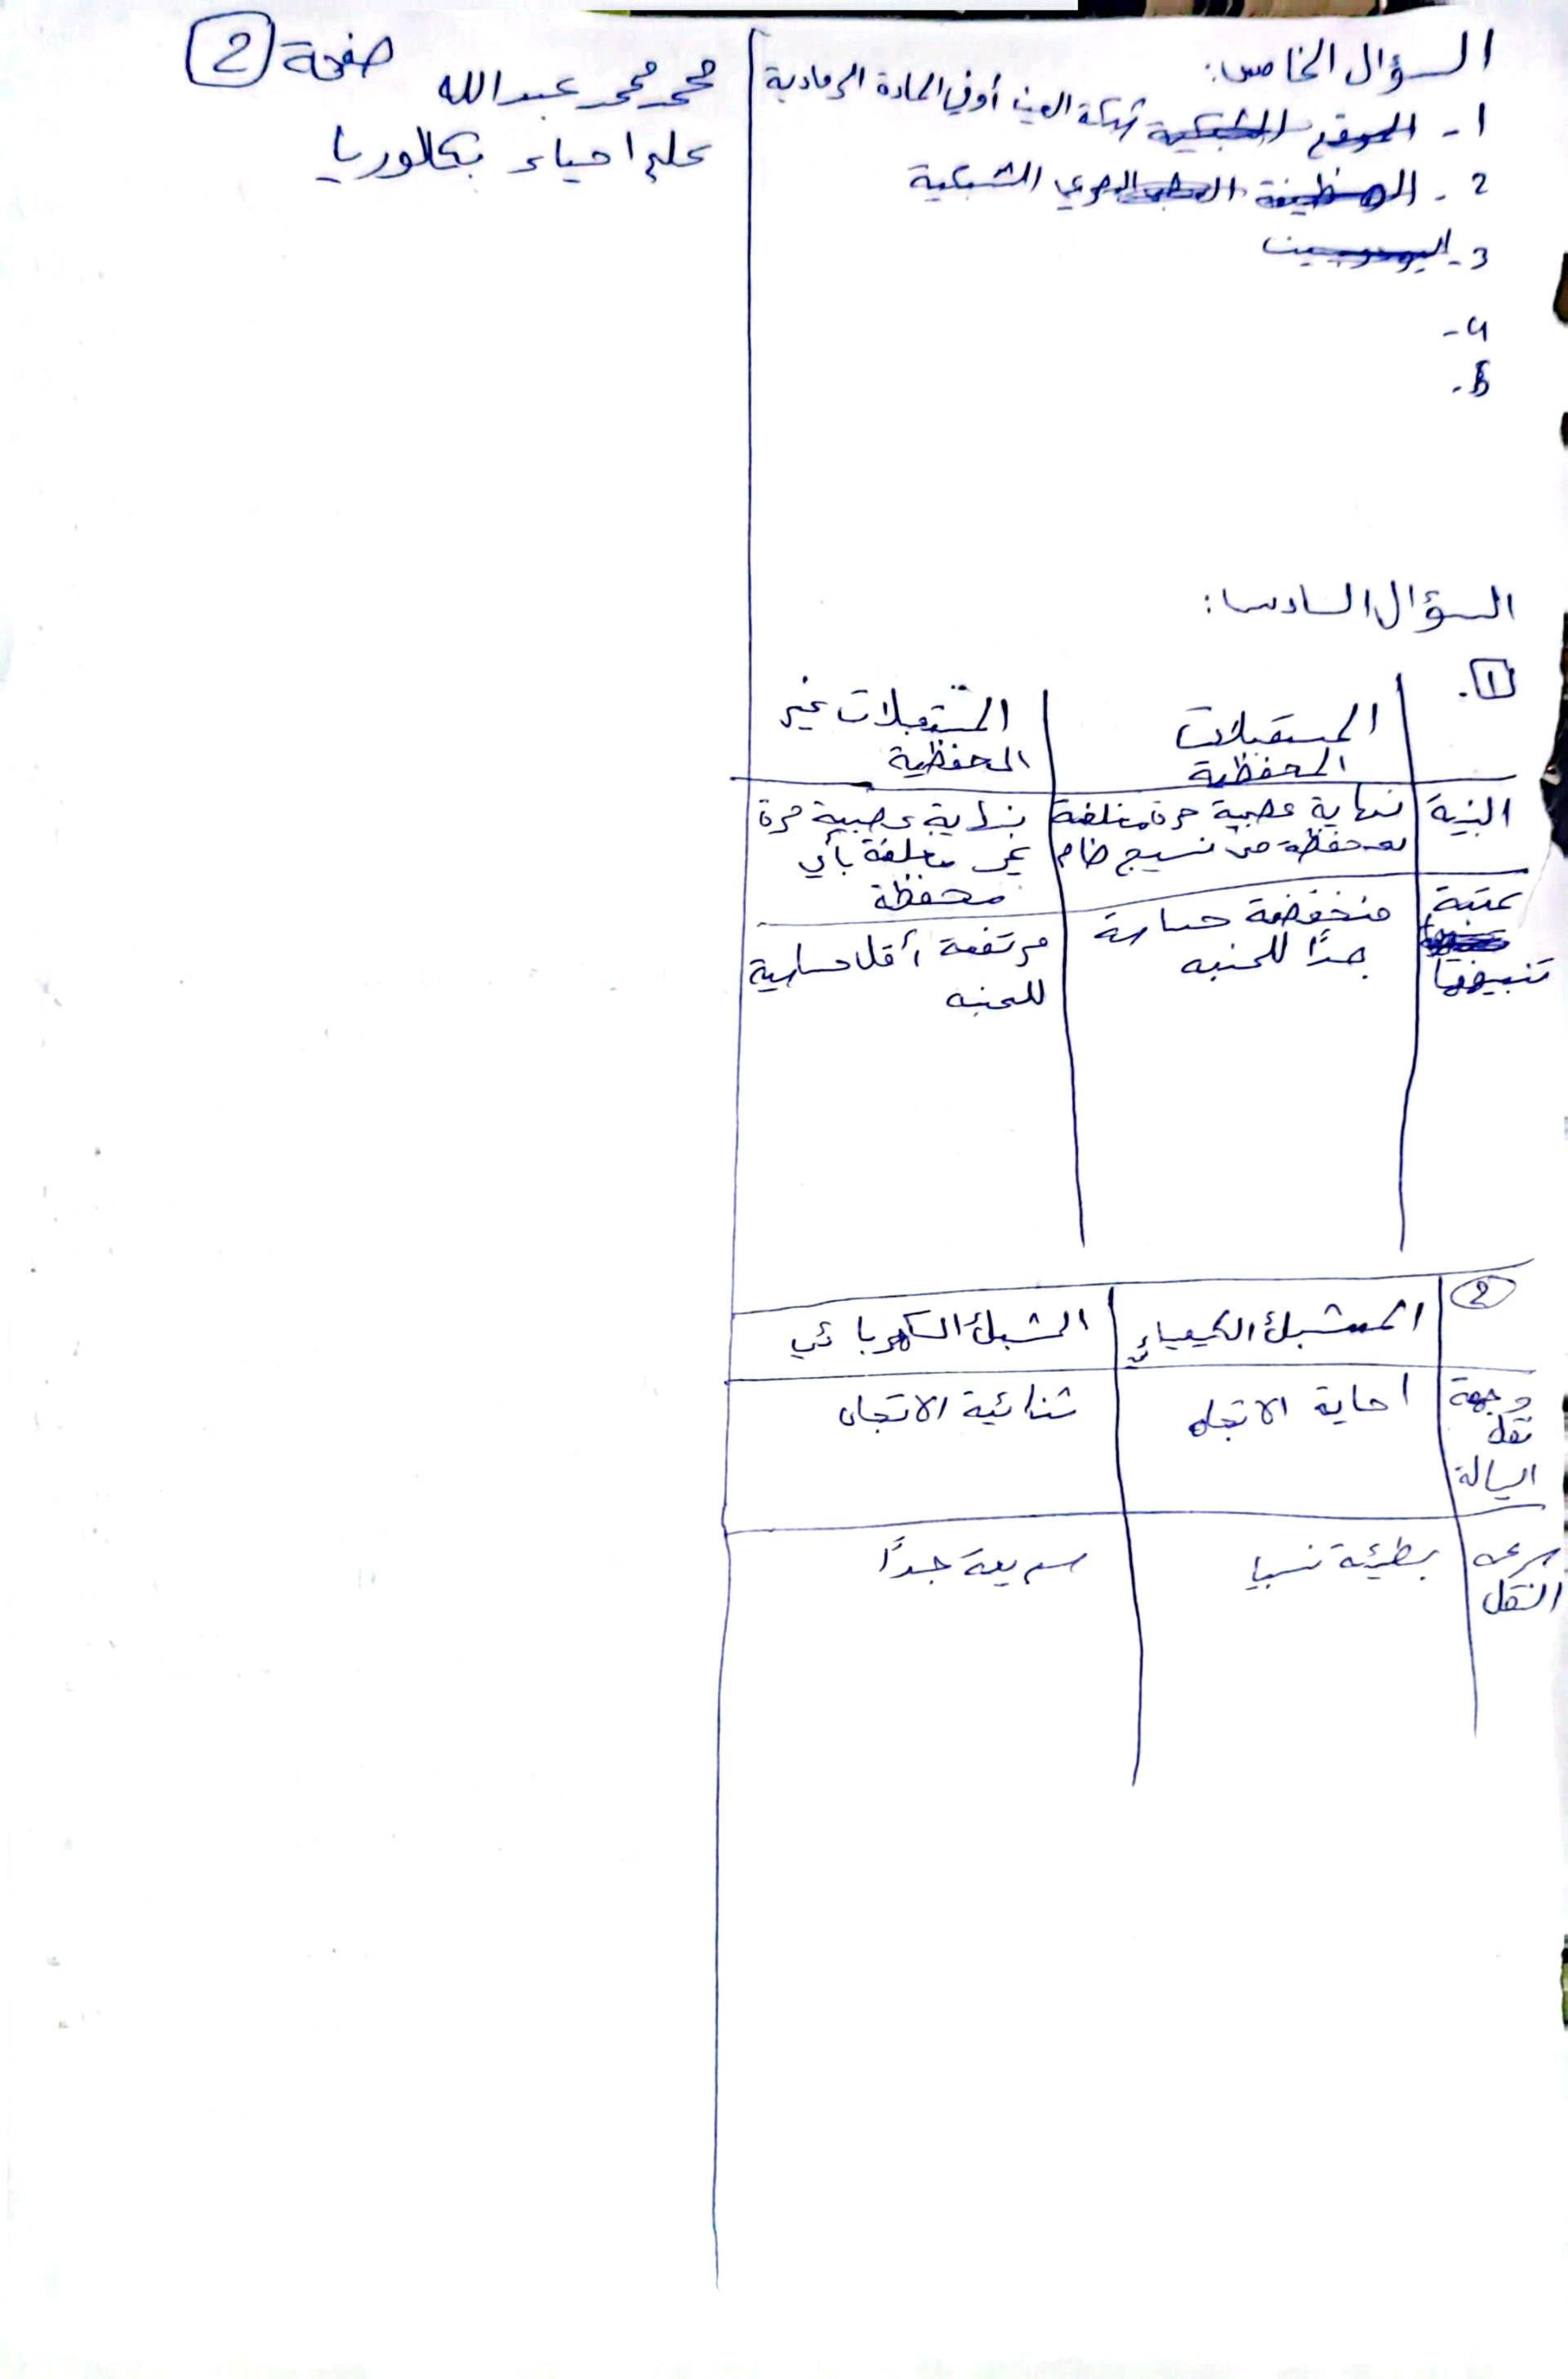 صفحة 2
محمد محمد عبدالله
علم احياء بكالوريا
السؤال الخامس:
1- شبكة العين أو في المادة الرمادية
2- الشبكية
3-
4-
5-
السؤال السادس:
1.
المستقبلات المحفظية
المستقبلات غير المحفظية
البنية
نهاية عصبية حرة مغلفة بمحفظة من نسيج ضام
نهاية عصبية حرة غير مغلفة بأي محفظة
عتبة تنبيهها
منخفضة حساسة جدًا للمنبه
مرتفعة أقل حساسية للمنبه
2
المشبك الكيميائي
المشبك الكهربائي
وجهة نقل السيالة
احاية الاتجاه
ثنائية الاتجاه
سرعة النقل
بطيئة نسبيا
سريعة جدًا